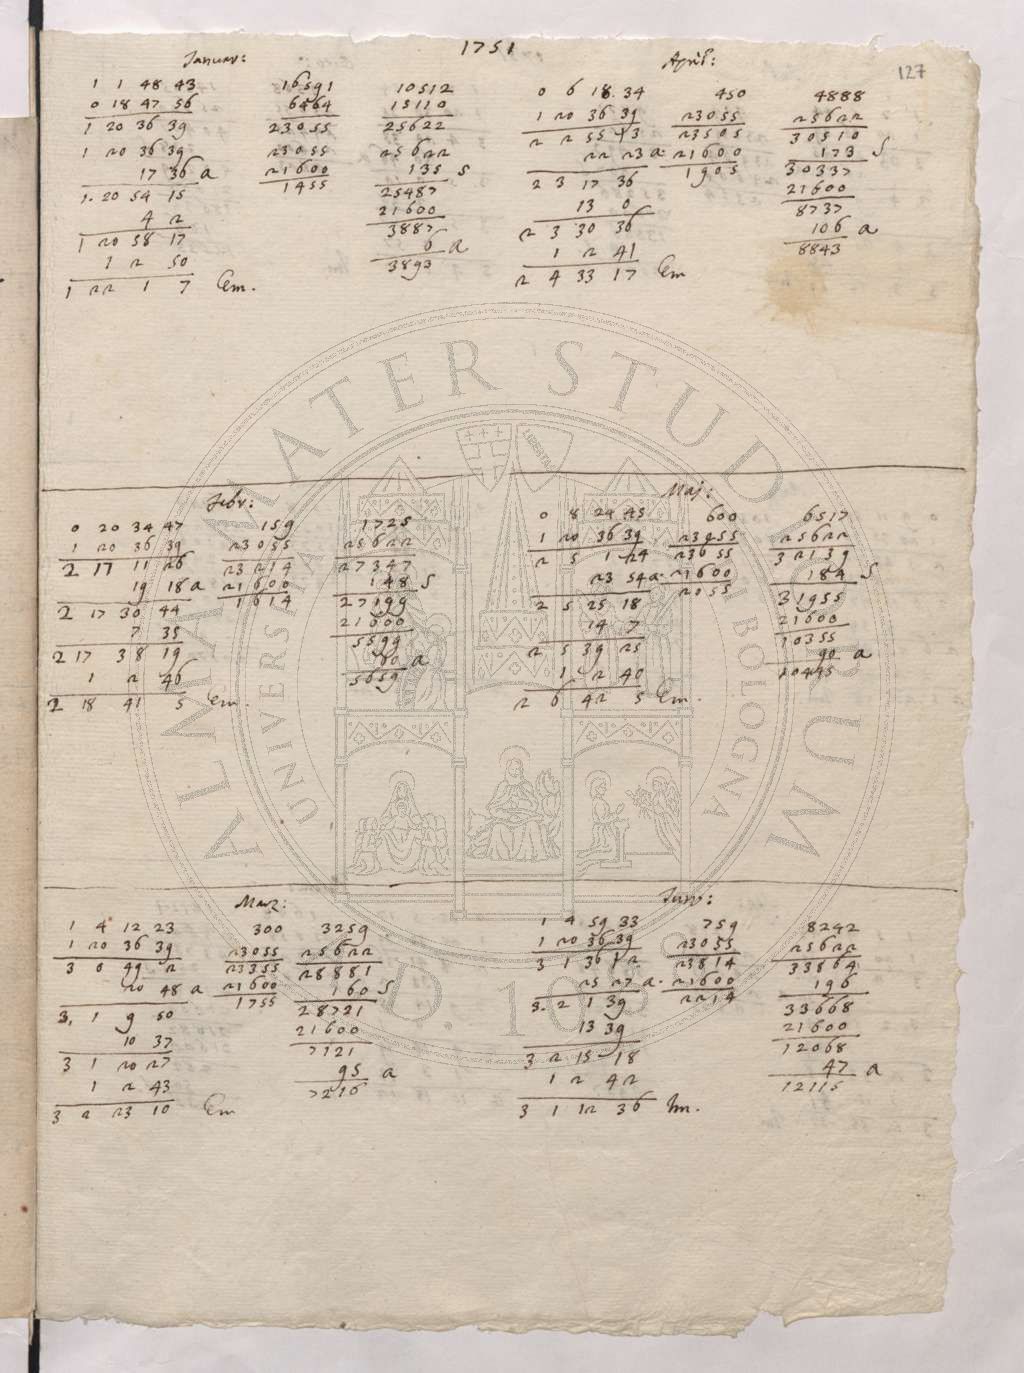 1751
127
Januar:
1 1 48 43 16591 10512
0 18 47 56 6464 15110
1 20 36 39 23055 25622
1 20 36 39 23055 25622
17 36 a 21600 135 s
1. 20 54 15 1455 25487
4 2 21600
1 20 58 17 3887
1 2 50 6 a
1 22 1 7 Em. 3893
April:
0 6 18 34 450 4888
1 20 36 39 23055 25622
2 2 55 13 23505 30510
22 23 a 21600 173 s
2 3 17 36 1905 30337
13 0 21600
2 3 30 36 8737
1 2 41 106 a
2 4 33 17 Em 8843
Febr:
0 20 34 47 159 1725
1 20 36 39 23055 25622
2 17 11 26 23214 27347
19 18 a 21600 148 s
2 17 30 44 1614 27199
7 35 21600
2 17 38 19 5599
1 2 46 60 a
2 18 41 5 Em. 5659
Maj:
0 8 24 45 600 6517
1 20 36 39 23055 25622
2 5 1 24 23655 32139
23 54 a 21600 184 s
2 5 25 18 2055 31955
14 7 21600
2 5 39 25 10355
1 2 40 90 a
2 6 42 5 Em. 10445
Mar:
1 4 12 23 300 3259
1 20 36 39 23055 25622
3 0 49 2 23355 28881
20 48 a 21600 160 s
3, 1 9 50 1755 28721
10 37 21600
3 1 20 27 7121
1 2 43 95 a
3 2 23 10 Em 7216
Jun:
1 4 59 33 759 8242
1 20 36 39 23055 25622
3 1 36 12 23814 33864
25 27 a 21600 196
3. 2 1 39 2214 33668
13 39 21600
3 2 15 18 12068
1 2 42 47 a
3 1 12 36 Im. 12115
ALMA MATER STUDIORUM
UNIVERSITÀ DI BOLOGNA
A.D. 1088
LIBERTAS